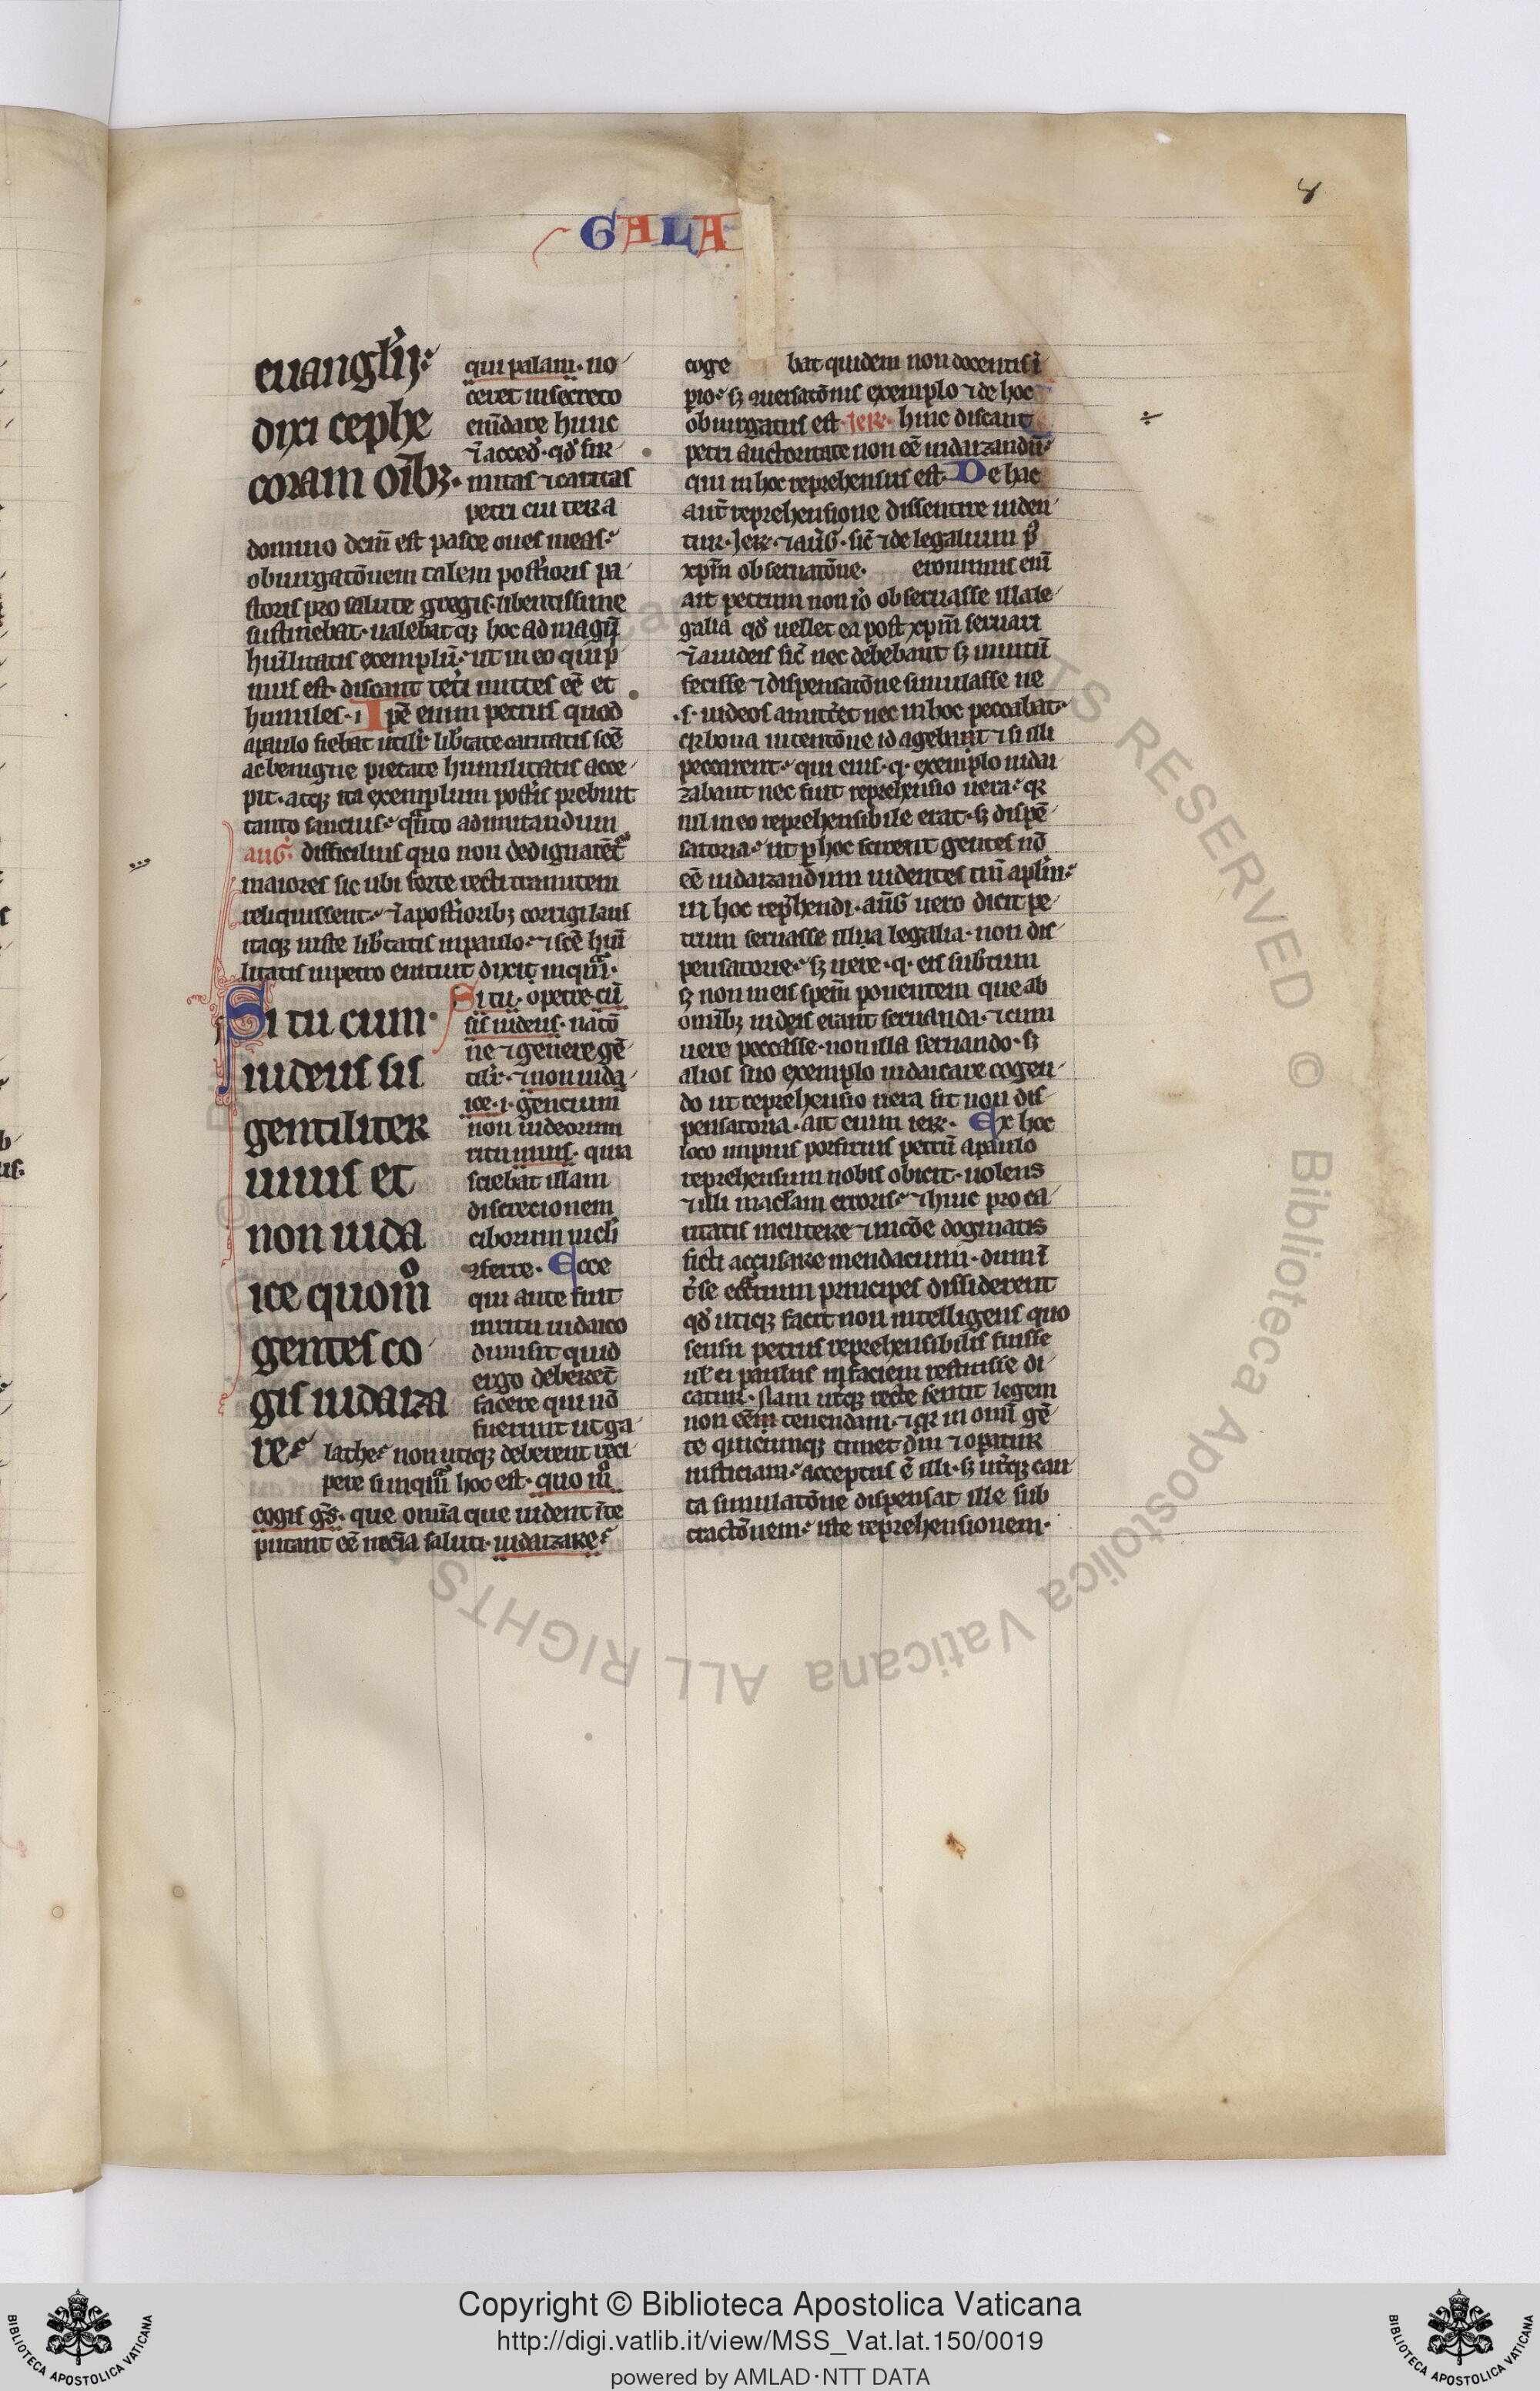 8
GALA
euanglij
dixi cephe
coram oībꝫ.
qui palam. no
ceret in secreto
emēdare hunc
ī acced̕. qd̕ fir
mitas ⁊ caritas
petri cui ter a
domino dcm̄ est pasce oues meas.
obiurgatōnem talem post̕ioris pa
storis pro salute gregis libentissime
sustinebat. ualebat qꝫ hoc ad magnū
hūilitatis exemplū. ut in eo qui p̕
mus est. discant cet̕i mittes eē et
humiles. i Ipē enim petrus quod
a paulo fiebat utilit̕ lib̕tate caritatis scē
ac benigne pietate humilitatis acce
pit. atqꝫ ita exemplum post̕is prebuit
tanto sanctius. qn̄to ad imitandum
aug̕. difficilius quo non dedignarēt̕
maiores sicubi forte recti tramitem
reliquissent. ī a post̕ioribꝫ corrigi laus
itaqꝫ iuste lib̕tatis in paulo. ⁊ scē hūi
litatis in petro enituit dixit inquā.
Si tu cum
iudeus sis
gentiliter
uiuis et
non iuda
ice quom̊
gentes co
gis iudaiza
re
Si tu. o petre. cū
sis iudeus. natō
ne ⁊ genere gē
tilit̕. ⁊ non iuda
ice. i. gencium
non iudeorum
ritu uiuis. quia
sciebat illam
discrecionem
ciborum nich̕
ꝯferre. Ecce
qui ante fuit
in ritu iudaico
diuisit quid
ergo deberet̄
facere qui nō
fuerunt ut ga
lathe. non utiqꝫ deberent reci
pere sūnqm̊ hoc est. quo m̊
cogis gn̄s. que omīa que uident in te
putant eē necīa saluti. iudaizare.
coge bat quidem non docentis ī
pio. sꝫ ꝯuersatōnis exemplo ⁊ de hoc
obiurgatus est. Jer̄. hinc discant
petri auctoritate non eē iudaizandū.
qui in hoc reprehensus est. De hac
aut̄ reprehensione dissentire uiden
tur. Jer̄. ⁊ aug̕. sic̄ ⁊ de legalium p̕
xpm̄ obseruatōne. eronimus eni̅
ait petrum non io̊ obseruasse illa le
galia qd̕ uellet ea post xpm̄ seruari
ī a iudeis sic̄ nec debebant sꝫ inuitū
fecisse ⁊ dispensatōne simulasse ne
.s. iudeos amitt̕et nec in hoc peccabat.
qꝛ bona intentōne id agebant ⁊ si illi
peccarent. qui eius. q. exemplo iudai
zabant nec fuit reprehensio uera. qꝛ
nil in eo reprehensibile erat. sꝫ dispē
satoria. ut p hoc scirent gentes nō
eē iudaizandum uidentes tm̄ aplm̄.
in hoc rep̕hendi. aug̕ uero dicit pe
trum seruasse illa legalia. non dis
pensatorie. sꝫ uere. q. eis subtum
sꝫ non in eis spem̄ ponentem que ab
omībꝫ iudeis erant seruanda. ⁊ cum
uere peccasse. non illa seruando. sꝫ
alios suo exemplo iudaicare cogen
do ut reprehensio uera sit non dis
pensatoria. ait enim ier̄. Ex hoc
loco impius porfirius petrū a paulo
reprehensum nobis obicit. uolens
⁊ illi maclam erroris. ⁊ huic procа
citatis incutere ⁊ in cōe dogmatis
ficti accusare mendacium. dum ī
t̕ se ecct̄ium principes dissiderent
qd̕ utiqꝫ facit non intelligens quo
sensu petrus reprehensibilis fuisse
ul̕ ei paulus in faciem restitisse di
catur. Nam utqꝫ recte sentit legem
non eē tenendam. ⁊ qꝛ in omī gē
te quicunqꝫ timet dm̄ ⁊ opatur
iusticiam. acceptus ē illi. sꝫ ut̕qꝫ cau
ta simulatōne dispensat ille sub
tractōnem. iste reprehensionem.
© Biblioteca Apostolica Vaticana ALL RIGHTS RESERVED
Copyright © Biblioteca Apostolica Vaticana
http://digi.vatlib.it/view/MSS_Vat.lat.150/0019
powered by AMLAD·NTT DATA
BIBLIOTECA APOSTOLICA VATICANA
BIBLIOTECA APOSTOLICA VATICANA